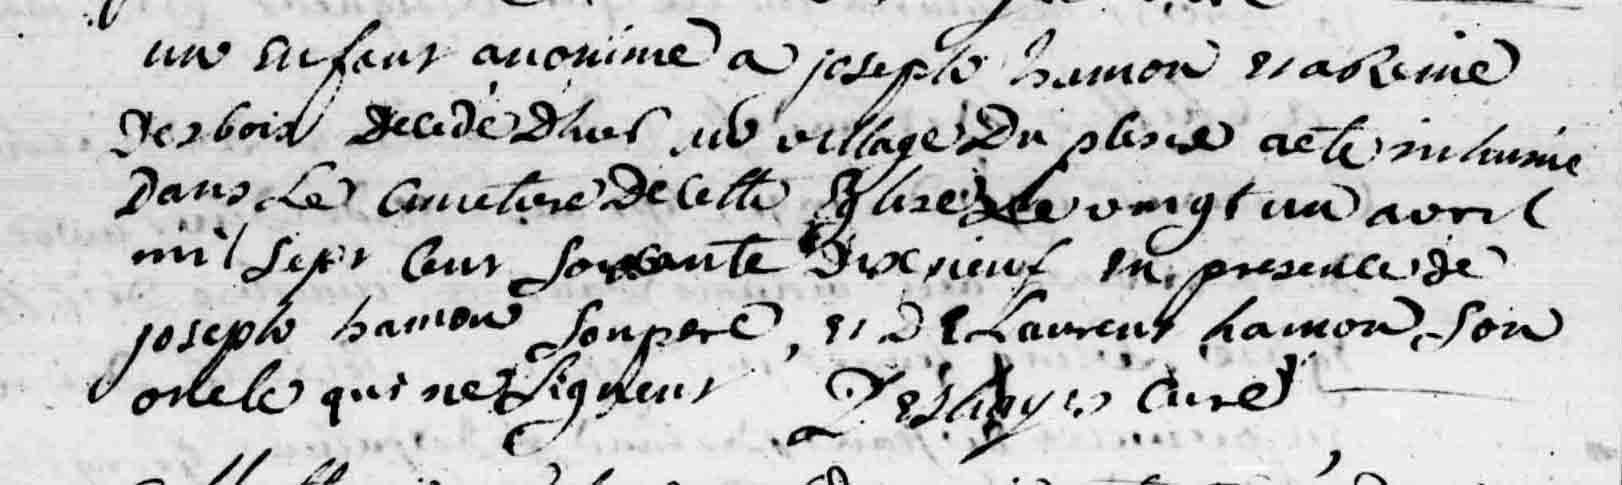 un enfant anonime a joseph hamon et a Reine
Desbois decedé d'hier au village du plesix a eté inhumé
Dans Le Cimetiere de cette Eglise Le vingt un avril
mil sept Cent Soixante Dix neuf en presence de
joseph hamon Son pere, et DE Laurent hamon Son
oncle qui ne Signent curé